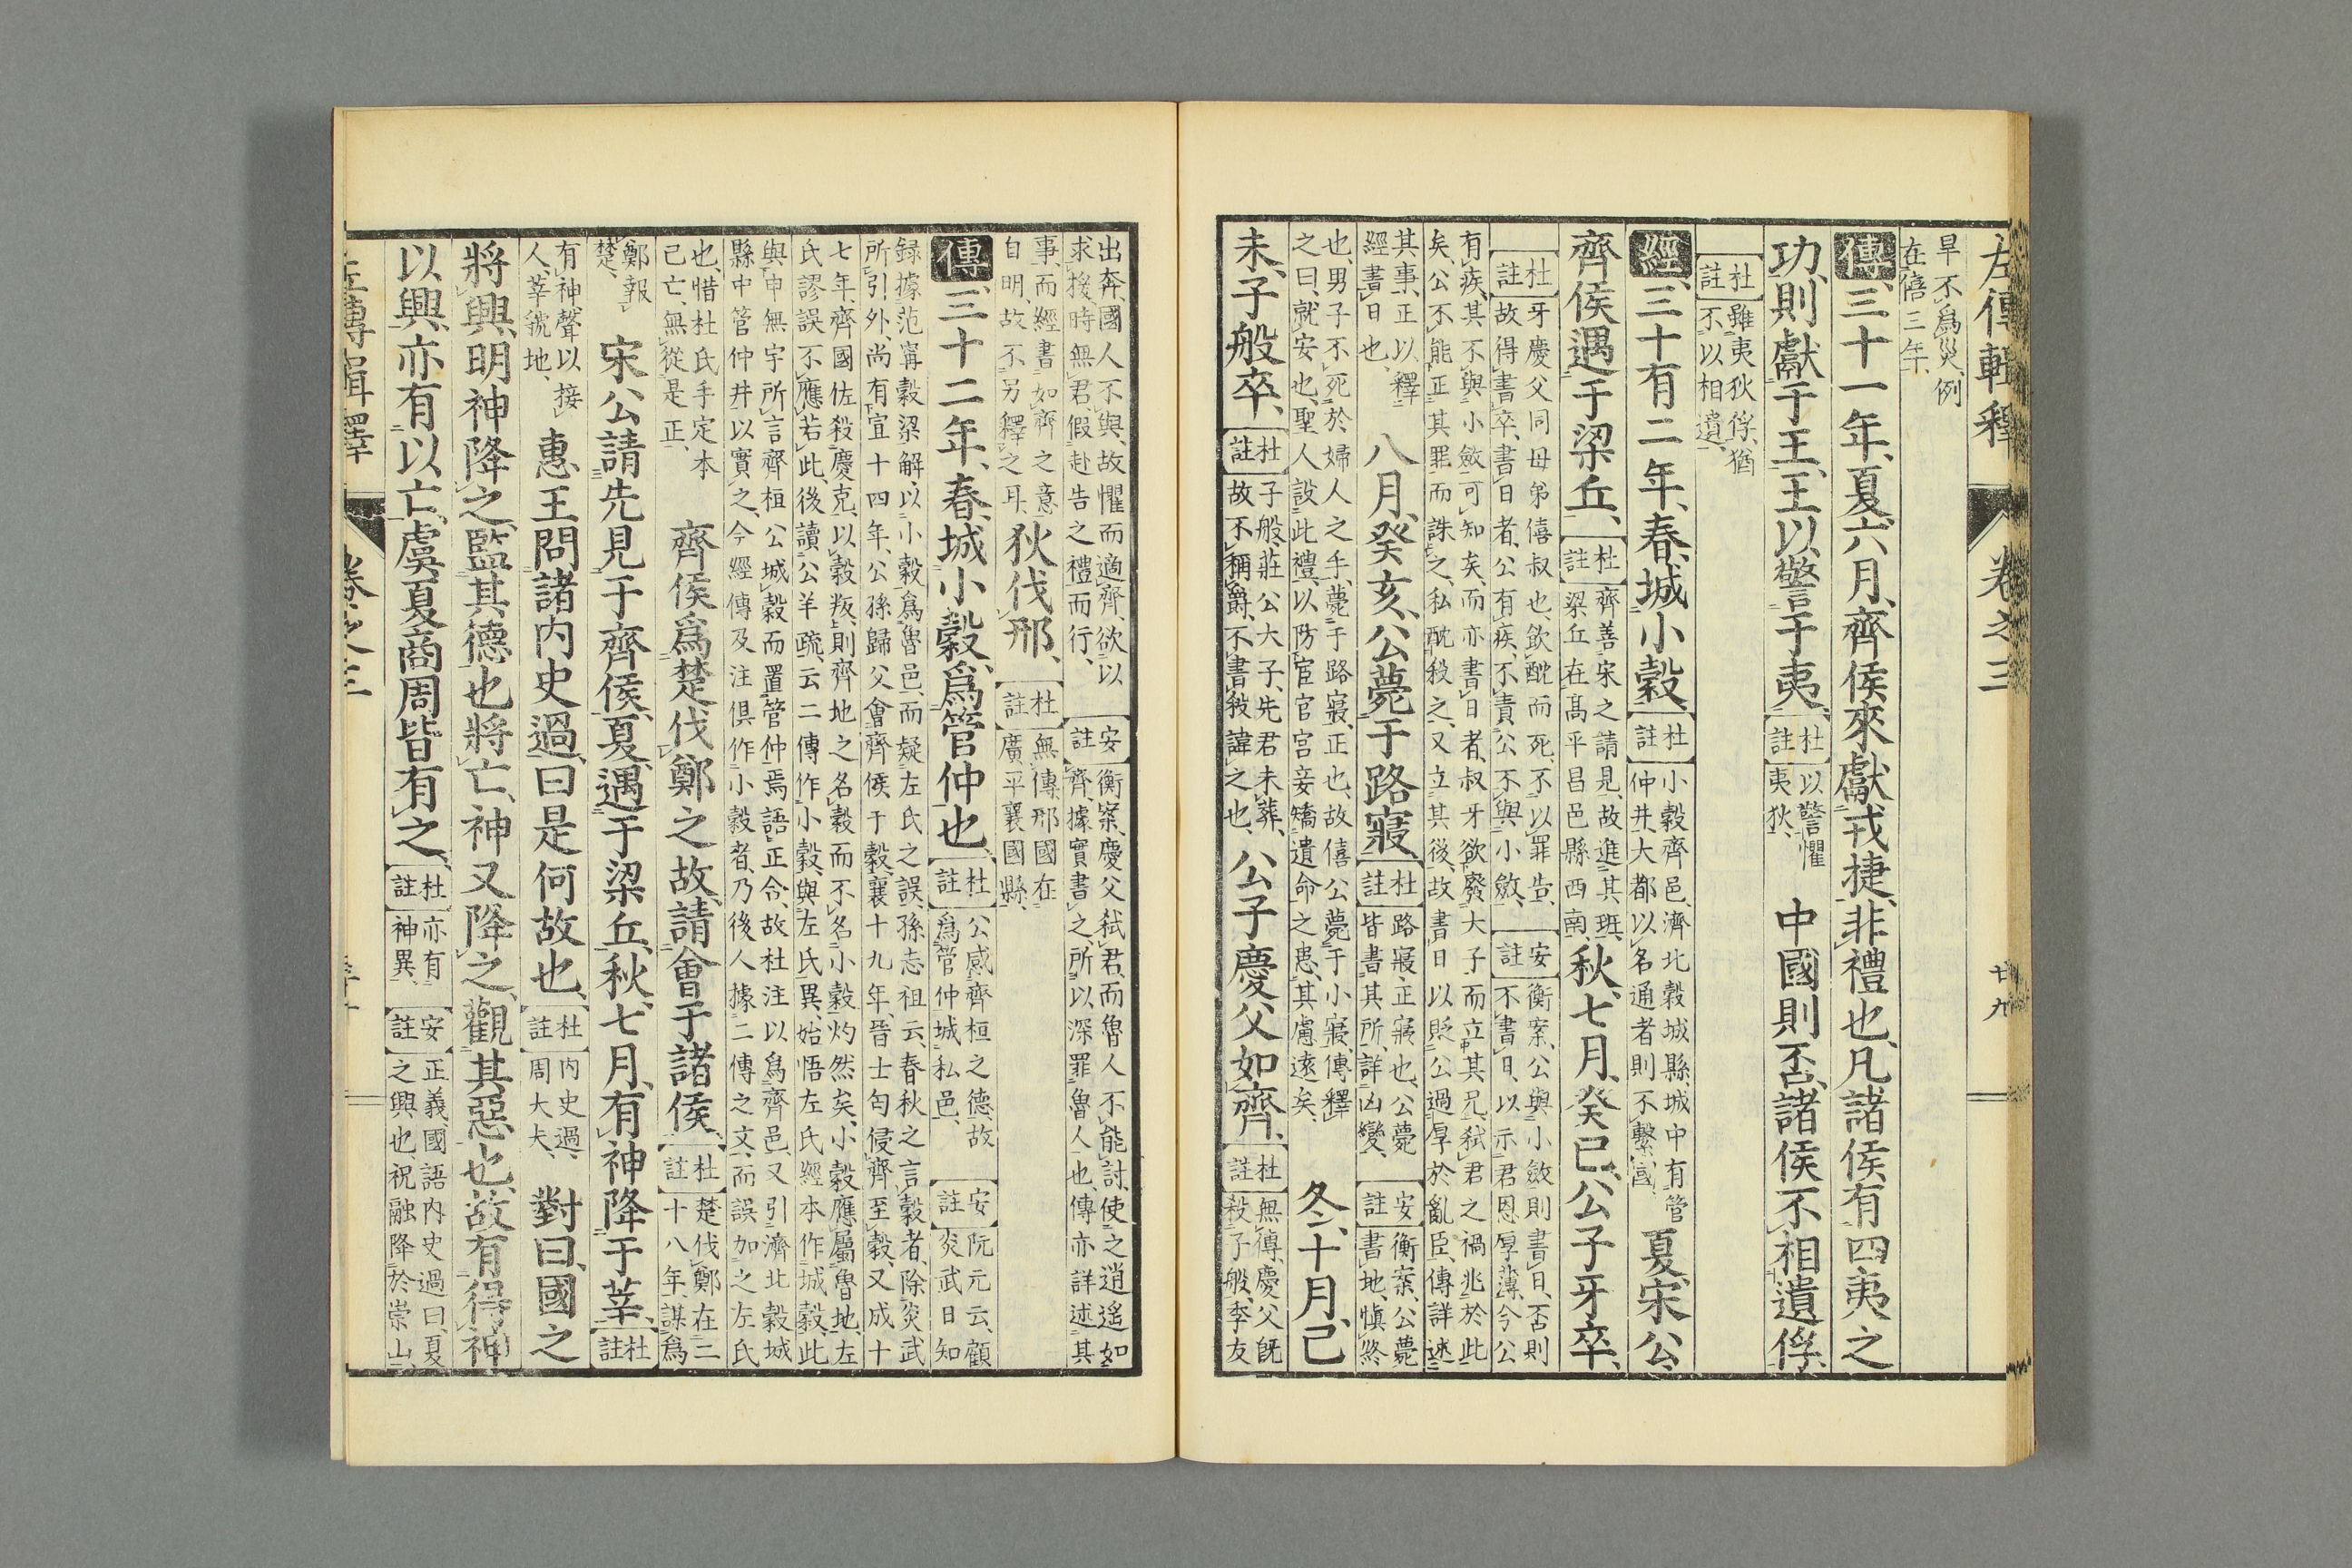 左傳輯釋 卷之三 廿九
旱不爲災、例
在僖三年、
傳、三十一年、夏、六月、齊侯來獻戎捷、非禮也、凡諸侯有四夷之
功、則獻于王、王以警于夷、杜註 以警懼夷狄、 中國則否、諸侯不相遺俘、
杜註 雖夷狄俘、猶不以相遺、
經、三十有二年、春、城小穀、杜註 小穀齊邑、濟北穀城縣、城中有管仲井、大都以名通者、則不繫國、 夏、宋公、
齊侯遇于梁丘、杜註 齊善宋之請見、故進其班、梁丘在高平昌邑縣西南、 秋、七月、癸巳、公子牙卒、
杜註 牙慶父同母弟僖叔也、飲酖而死、不以罪告、故得書卒、書日者、公有疾、不責公不與小斂、 安註 衡案、公與小斂則書日、否則不書日、以示君恩厚薄、今公
有疾、其不與小斂可知矣、而亦書日者、叔牙欲廢大子而立其兄、弒君之禍兆於此
矣、公不能正其罪而誅之、私酖殺之、又立其後、故書日以貶公過厚於亂臣、傳詳述
其事、正以釋經書日也、 八月、癸亥、公薨于路寢、杜註 路寢正寢也、公薨皆書其所、詳凶變、 安註 衡案、公薨書地、愼終
也、男子不死於婦人之手、薨于路寢、正也、故僖公薨于小寢、傳釋
之曰、就安也、聖人設此禮、以防宦官宮妾矯遺命之患、其慮遠矣、 冬、十月、己
未、子般卒、杜註 子般、莊公大子、先君未葬、故不稱爵、不書殺諱之也、 公子慶父如齊、杜註 無傳、慶父旣殺子般、季友
出奔、國人不與、故懼而適齊、欲以求援、時無君、假赴告之禮而行、 安註 衡案、慶父弒君、而魯人不能討、使之逍遙如齊、據實書之、所以深罪魯人也、傳亦詳述其
事、而經書如齊之意自明、故不另釋之耳、 狄伐邢、杜註 無傳、邢國在廣平襄國縣、
傳、三十二年、春、城小穀、爲管仲也、杜註 公感齊桓之德、故爲管仲城私邑、 安註 阮元云、顧炎武日知
録據范甯穀梁解、以小穀爲魯邑、而疑左氏之誤、孫志祖云、春秋之言穀者、除炎武
所引外、尚有宣十四年、公孫歸父會齊侯于穀、襄十九年、晉士匄侵齊至穀、又成十
七年、齊國佐殺慶克、以穀叛、則齊地之名穀而不名小穀灼然矣、小穀應屬魯地、左
氏謬誤不應若此、後讀公羊疏、云二傳作小穀、與左氏異、始悟左氏經本作城穀、此
與申無宇所言齊桓公城穀而置管仲焉語正合、故杜注以爲齊邑、又引濟北穀城
縣中管仲井以實之、今經傳及注俱作小穀者、乃後人據二傳之文、而誤加之左氏
也、惜杜氏手定本已亡、無從是正、 齊侯爲楚伐鄭之故、請會于諸侯、杜註 楚伐鄭在二十八年、謀爲
鄭報楚、 宋公請先見于齊侯、夏、遇于梁丘、秋、七月、有神降于莘、杜註
有神聲以接人、莘虢地、 惠王問諸內史過、曰是何故也、杜註 內史過、周大夫、 對曰、國之
將興、明神降之、監其德也、將亡、神又降之、觀其惡也、故有得神
以興、亦有以亡、虞夏商周皆有之、杜註 亦有神異、 安註 正義、國語內史過曰、夏之興也、祝融降於崇山、
左傳輯釋 卷之三